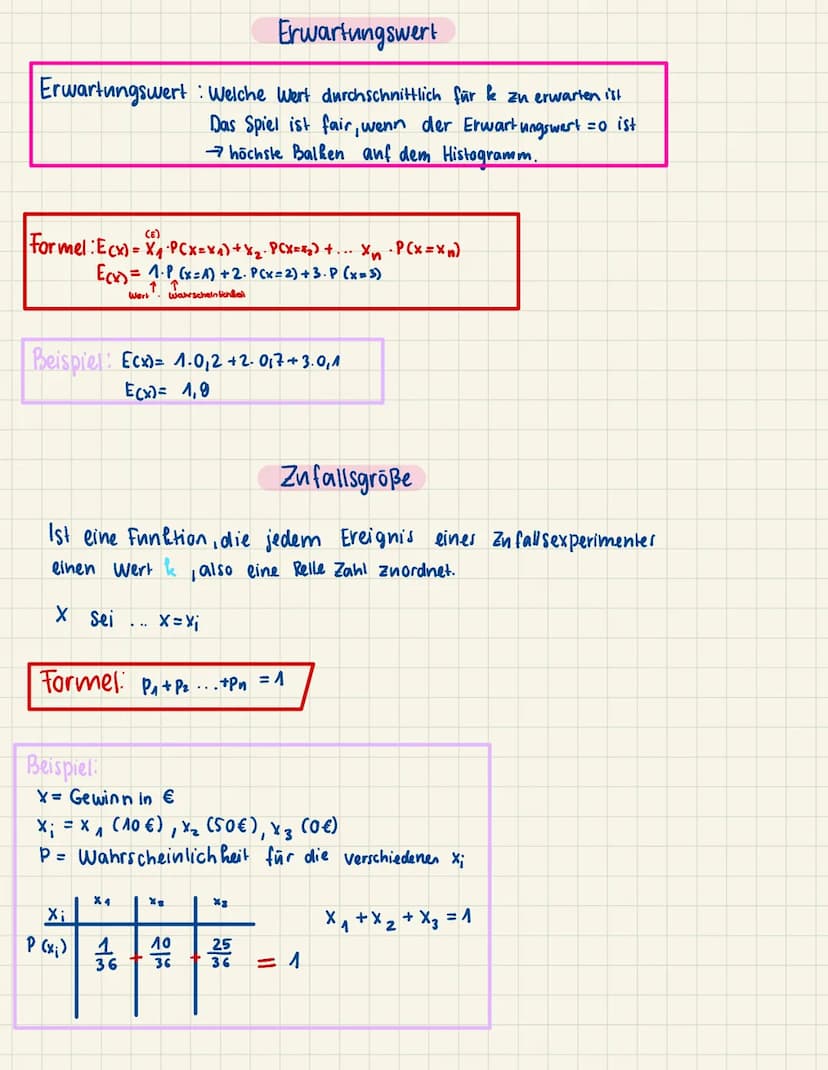 Erwartungswert
Erwartungswert : Welche Wert durchschnittlich für k zu erwarten ist
Das Spiel ist fair, wenn der Erwartungswert =0 ist
→ höchste Balken auf dem Histogramm.
(€)
Formel: E(x) = x₁ · P(x=x₁) + x₂ · P(x=x₂) + ... xₙ · P(x=xₙ)
E(x) = 1 · P (x=1) + 2 · P(x=2) + 3 · P (x=3)
↑ ↑
Wert · Wahrscheinlichkeit
Beispiel: E(x)= 1·0,2 + 2·0,7 + 3·0,1
E(x)= 1,9
Zufallsgröße
Ist eine Funktion, die jedem Ereignis eines Zufallsexperimentes
einen Wert k , also eine Relle Zahl zuordnet.
X sei ... X=xᵢ
Formel: P₁ + P₂ ... +Pₙ = 1
Beispiel:
X = Gewinn in €
xᵢ = x₁ (10 €) , x₂ (50€), x₃ (0€)
P = Wahrscheinlichkeit für die verschiedenen xᵢ
xᵢ x₁ x₂ x₃
x₁ + x₂ + x₃ = 1
P (xᵢ) 1/36 + 10/36 + 25/36 = 1